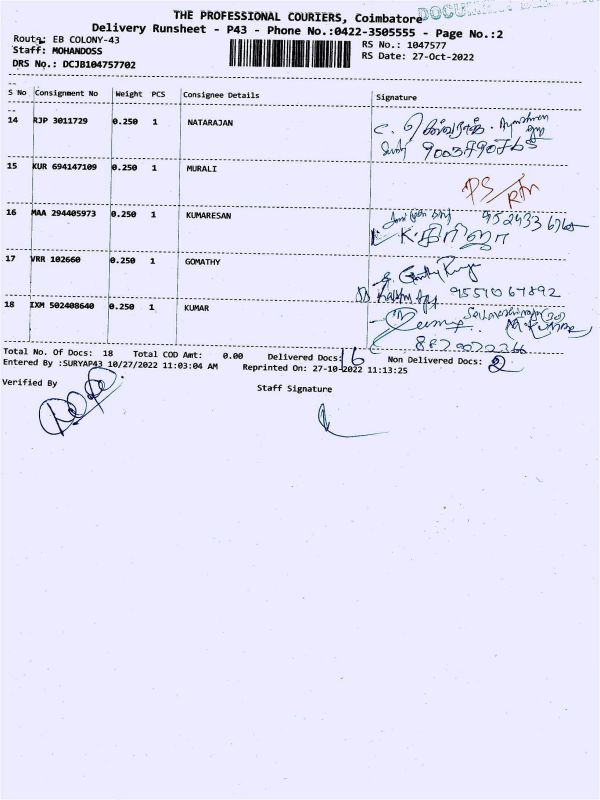 THE PROFESSIONAL COURIERS, Coimbatore
Delivery Runsheet - P43 - Phone No.:0422-3505555 - Page No.:2
Route: EB COLONY-43
RS No.: 1047577
Staff: MOHANDOSS
RS Date: 27-Oct-2022
DRS No.: DCJB104757702
S No Consignment No Weight PCS Consignee Details Signature
14 RJP 3011729 0.250 1 NATARAJAN
15 KUR 694147109 0.250 1 MURALI
16 MAA 294405973 0.250 1 KUMARESAN
K. கிரிஜா
17 VRR 102660 0.250 1 GOMATHY
9551067892
18 IXM 502408640 0.250 1 KUMAR
Total No. Of Docs: 18 Total COD Amt: 0.00 Delivered Docs: 16 Non Delivered Docs: 2
Entered By :SURYAP43 10/27/2022 11:03:04 AM Reprinted On: 27-10-2022 11:13:25
Verified By
Staff Signature